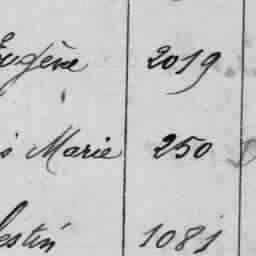 Eugène 2019
s Marie 250
lestin 1081